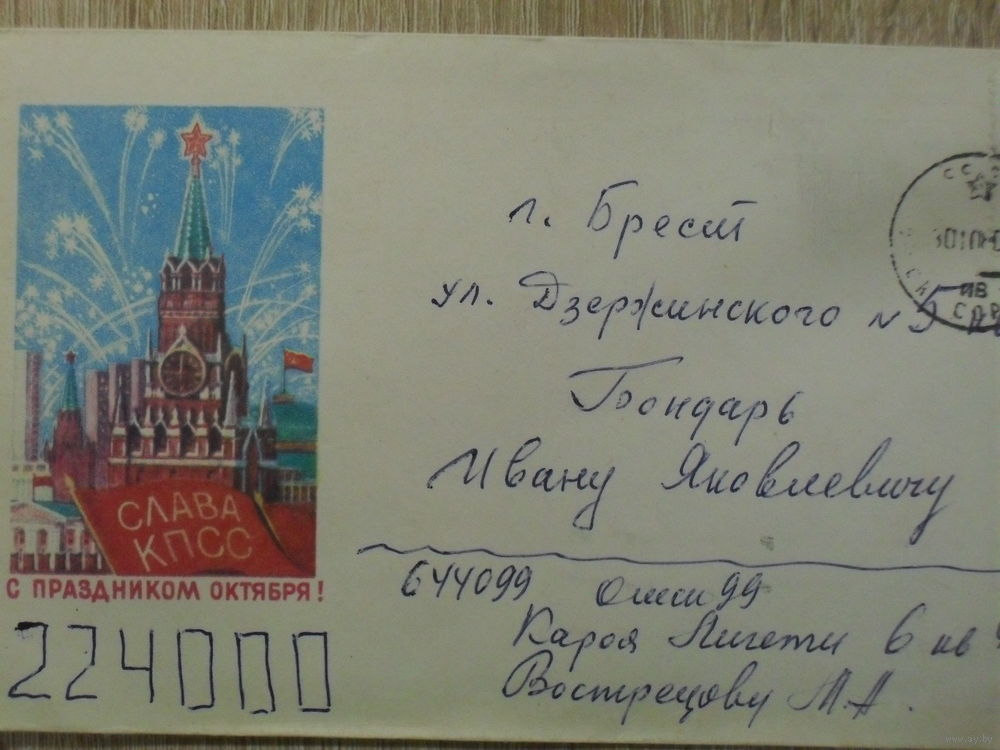 СЛАВА
КПСС
С ПРАЗДНИКОМ ОКТЯБРЯ!
224000
г. Брест
ул. Дзержинского №
Бондарь
Ивану Яковлевичу
644099 Омск 99
Кароя Лигети 6 кв
Вострецову М.А.
www.ay.by